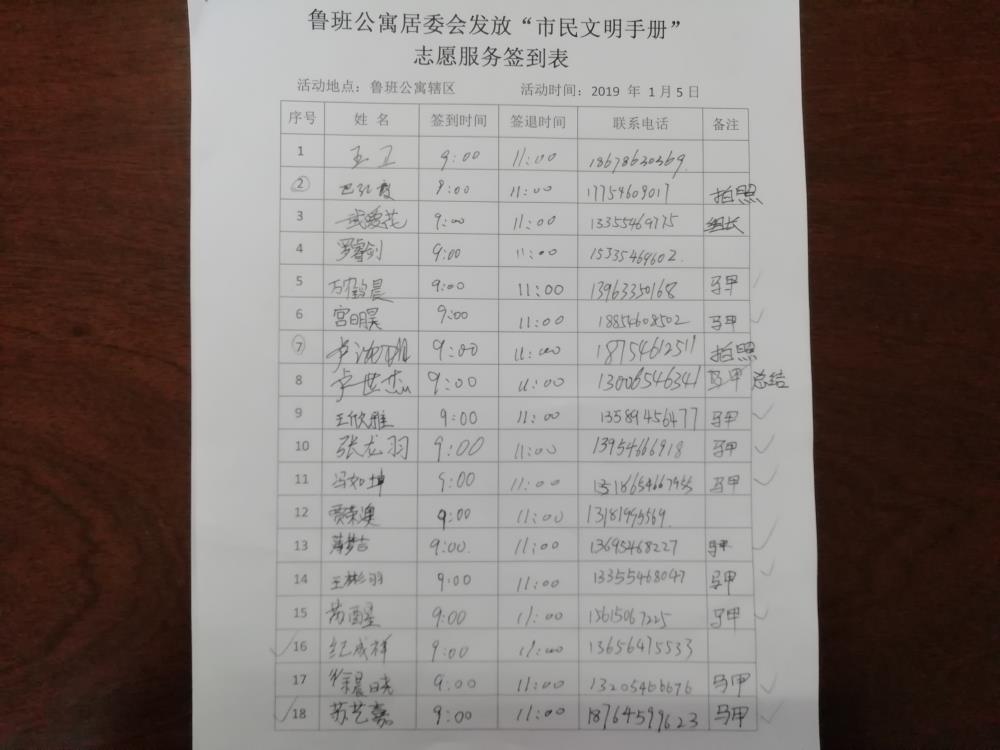 鲁班公寓居委会发放“市民文明手册”
志愿服务签到表
活动地点：鲁班公寓辖区 活动时间：2019 年 1月5日
序号 姓 名 签到时间 签退时间 联系电话 备注
1 王卫 9:00 11:00 18678630369
2 巴弘霞 9:00 11:00 17754609017 拍照
3 武爱花 9:00 11:00 13355469775 组长
4 罗睿剑 9:00 11:00 15335469602
5 万鹤晨 9:00 11:00 13963350168 马甲
6 宫明昊 9:00 11:00 18854608502 马甲
7 卢 9:00 11:00 18754612511 拍照
8 卢世杰 9:00 11:00 13006546341 马甲 总结
9 王欣雅 9:00 11:00 13589456477 马甲
10 张龙羽 9:00 11:00 13954666918 马甲
11 冯如坤 9:00 11:00 马甲
12 贾荣澳 9:00 11:00 13181995569
13 薄梦吉 9:00 11:00 13695468227 马甲
14 王彬羽 9:00 11:00 13355468047 马甲
15 9:00 11:00 15615067225 马甲
16 纪成祥 9:00 11:00 13656475533
17 徐晨晓 9:00 11:00 13205466676 马甲
18 苏艺嘉 9:00 11:00 18764599623 马甲